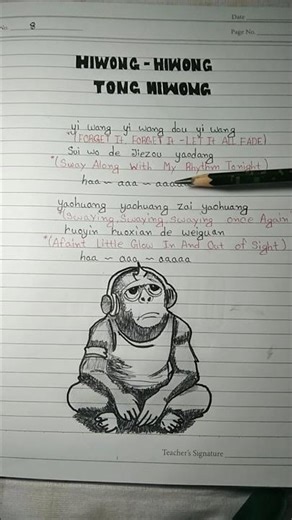 Date
No. 8
Page No.
HIWONG - HIWONG
TONG HIWONG
yi wang yi wang dou yi wang
"(FORGET It FORGET It - LET It All FADE)
Sui wo de Jiezou yaodang
"(Sway Along With My Rhythm Tonight)
haa ~ aaa ~ aaaaa
yaohuang yaohuang zai yaohuang
"(Swaying Swaying Swaying once Again
huoyin huoxian de weiguan
"(Afaint Little Glow In And Out of Sight)
haa ~ aaa ~ aaaaa
Teacher's Signature